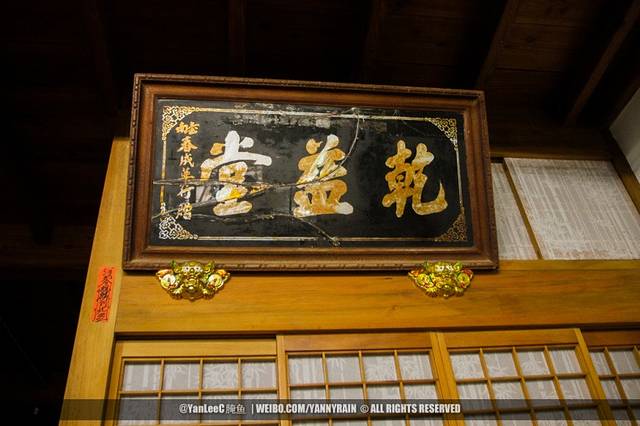 乾益堂
春成草行贈
@YanLeeC 腌鱼 | WEIBO.COM/YANNYRAIN © ALL RIGHTS RESERVED